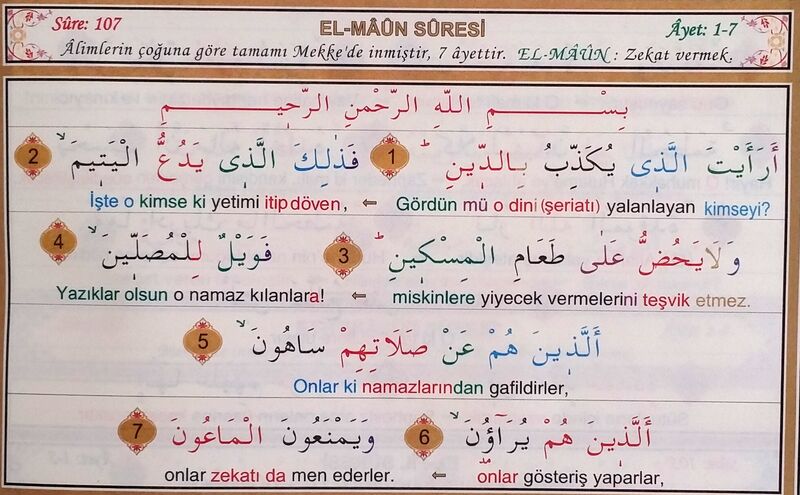 Sûre: 107 EL-MÂÛN SÛRESİ Âyet: 1-7
Âlimlerin çoğuna göre tamamı Mekke'de inmiştir, 7 âyettir. EL-MÂÛN : Zekat vermek.
بِسْــــــمِ اللّٰهِ الرَّحْمٰنِ الرَّح۪يــــــمِ
أَرَأَيْتَ الَّذ۪ى يُكَذِّبُ بِالدّ۪ينِ ۜ 1 فَذٰلِكَ الَّذ۪ى يَدُعُّ الْيَت۪يمَ ۙ 2
Gördün mü o dini (şeriatı) yalanlayan kimseyi? ⇐ İşte o kimse ki yetimi itip döven,
وَلَا يَحُضُّ عَلٰى طَعَامِ الْمِسْك۪ينِ ۜ 3 فَوَيْلٌ لِلْمُصَلّ۪ينَ ۙ 4
miskinlere yiyecek vermelerini teşvik etmez. ⇐ Yazıklar olsun o namaz kılanlara!
أَلَّذ۪ينَ هُمْ عَنْ صَلَاتِهِمْ سَاهُونَ ۙ 5
Onlar ki namazlarından gafildirler,
أَلَّذ۪ينَ هُمْ يُرَآؤُنَ ۙ 6 وَيَمْنَعُونَ الْمَاعُونَ 7
onlar gösteriş yaparlar, ⇐ onlar zekatı da men ederler.